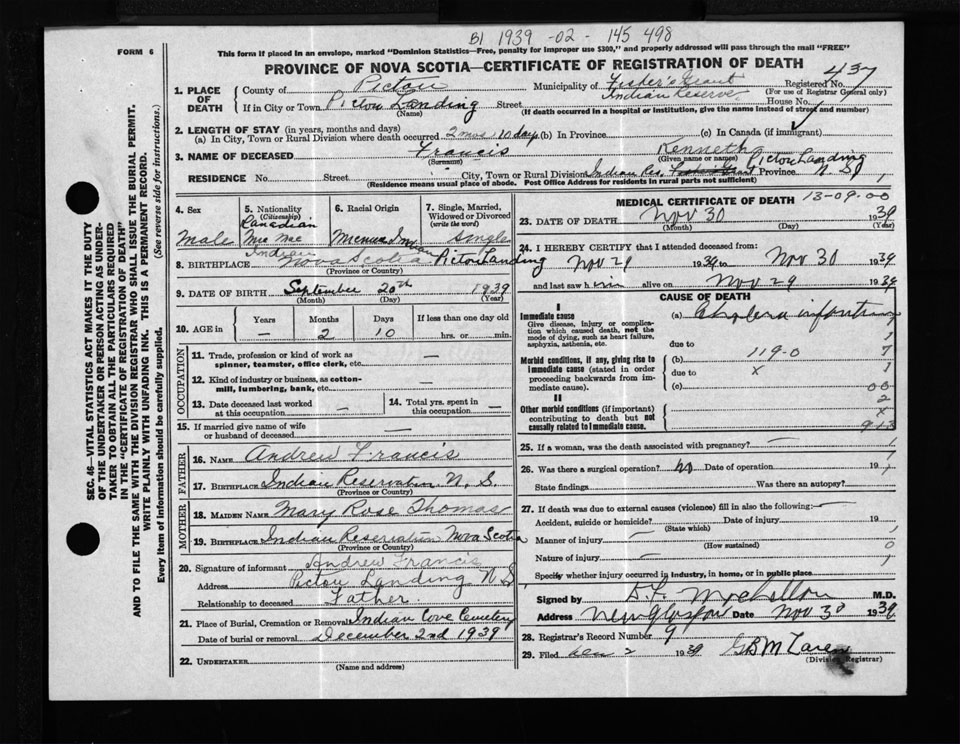 B1 1939 -02- 145 498
FORM 6
This form if placed in an envelope, marked "Dominion Statistics—Free, penalty for improper use $300," and properly addressed will pass through the mail "FREE"
PROVINCE OF NOVA SCOTIA—CERTIFICATE OF REGISTRATION OF DEATH
437
1. PLACE OF DEATH
County of Pictou Municipality of Fisher's Grant Indian Reserve Registered No.
(For use of Registrar General only)
If in City or Town Pictou Landing Street House No.
(Name) (If death occurred in a hospital or institution, give its name instead of street and number)
2. LENGTH OF STAY (in years, months and days)
(a) In City, Town or Rural Division where death occurred 2 mos 10 days (b) In Province (c) In Canada (if immigrant)
3. NAME OF DECEASED Francis Kenneth
(Surname) (Given name or names)
RESIDENCE No. Street City, Town or Rural Division Indian Res. Pictou Landing Province N.S.
(Residence means usual place of abode. Post Office Address for residents in rural parts not sufficient)
4. Sex Male
5. Nationality (Citizenship) Canadian Mic Mac Indian
6. Racial Origin Micmac Indian
7. Single, Married, Widowed or Divorced (write the word) Single
8. BIRTHPLACE Nova Scotia Pictou Landing
(Province or Country)
9. DATE OF BIRTH September 20th 1939
(Month) (Day) (Year)
10. AGE in Years Months Days If less than one day old
— 2 10 hrs. or min.
OCCUPATION
11. Trade, profession or kind of work as spinner, teamster, office clerk, etc. —
12. Kind of industry or business, as cotton-mill, lumbering, bank, etc. —
13. Date deceased last worked at this occupation —
14. Total yrs. spent in this occupation —
15. If married give name of wife or husband of deceased —
FATHER
16. NAME Andrew Francis
17. BIRTHPLACE Indian Reservation N. S.
(Province or Country)
MOTHER
18. MAIDEN NAME Mary Rose Thomas
19. BIRTHPLACE Indian Reservation Nova Scotia
(Province or Country)
20. Signature of informant Andrew Francis
Address Pictou Landing N S
Relationship to deceased Father.
21. Place of Burial, Cremation or Removal Indian Cove Cemetery
Date of burial or removal December 2nd 1939
22. UNDERTAKER
(Name and address)
MEDICAL CERTIFICATE OF DEATH 13-09-00
23. DATE OF DEATH Nov 30 1939
(Month) (Day) (Year)
24. I HEREBY CERTIFY that I attended deceased from:
Nov 29 1939 to Nov 30 1939
and last saw him alive on Nov 29 1939
CAUSE OF DEATH
I
Immediate cause (a) Cholera infantum
Give disease, injury or complication which caused death, not the mode of dying, such as heart failure, asphyxia, asthenia, etc.
due to
Morbid conditions, if any, giving rise to immediate cause (stated in order proceeding backwards from immediate cause).
(b) 119-0
due to x
(c)
II
Other morbid conditions (if important) contributing to death but not causally related to immediate cause.
25. If a woman, was the death associated with pregnancy? —
26. Was there a surgical operation? no Date of operation 19
State findings Was there an autopsy?
27. If death was due to external causes (violence) fill in also the following: —
Accident, suicide or homicide? Date of injury 19
(State which)
Manner of injury —
(How sustained)
Nature of injury —
Specify whether injury occurred in industry, in home, or in public place
Signed by M.D.
Address New Glasgow Date Nov 30 1939
28. Registrar's Record Number 9
29. Filed Dec 2 1939
(Division Registrar)
SEC. 46—VITAL STATISTICS ACT MAKES IT THE DUTY OF THE UNDERTAKER OR PERSON ACTING AS UNDERTAKER TO OBTAIN ALL THE PARTICULARS REQUIRED IN THE "CERTIFICATE OF REGISTRATION OF DEATH" AND TO FILE THE SAME WITH THE DIVISION REGISTRAR WHO SHALL ISSUE THE BURIAL PERMIT.
WRITE PLAINLY WITH UNFADING INK. THIS IS A PERMANENT RECORD.
Every item of Information should be carefully supplied. (See reverse side for instructions.)